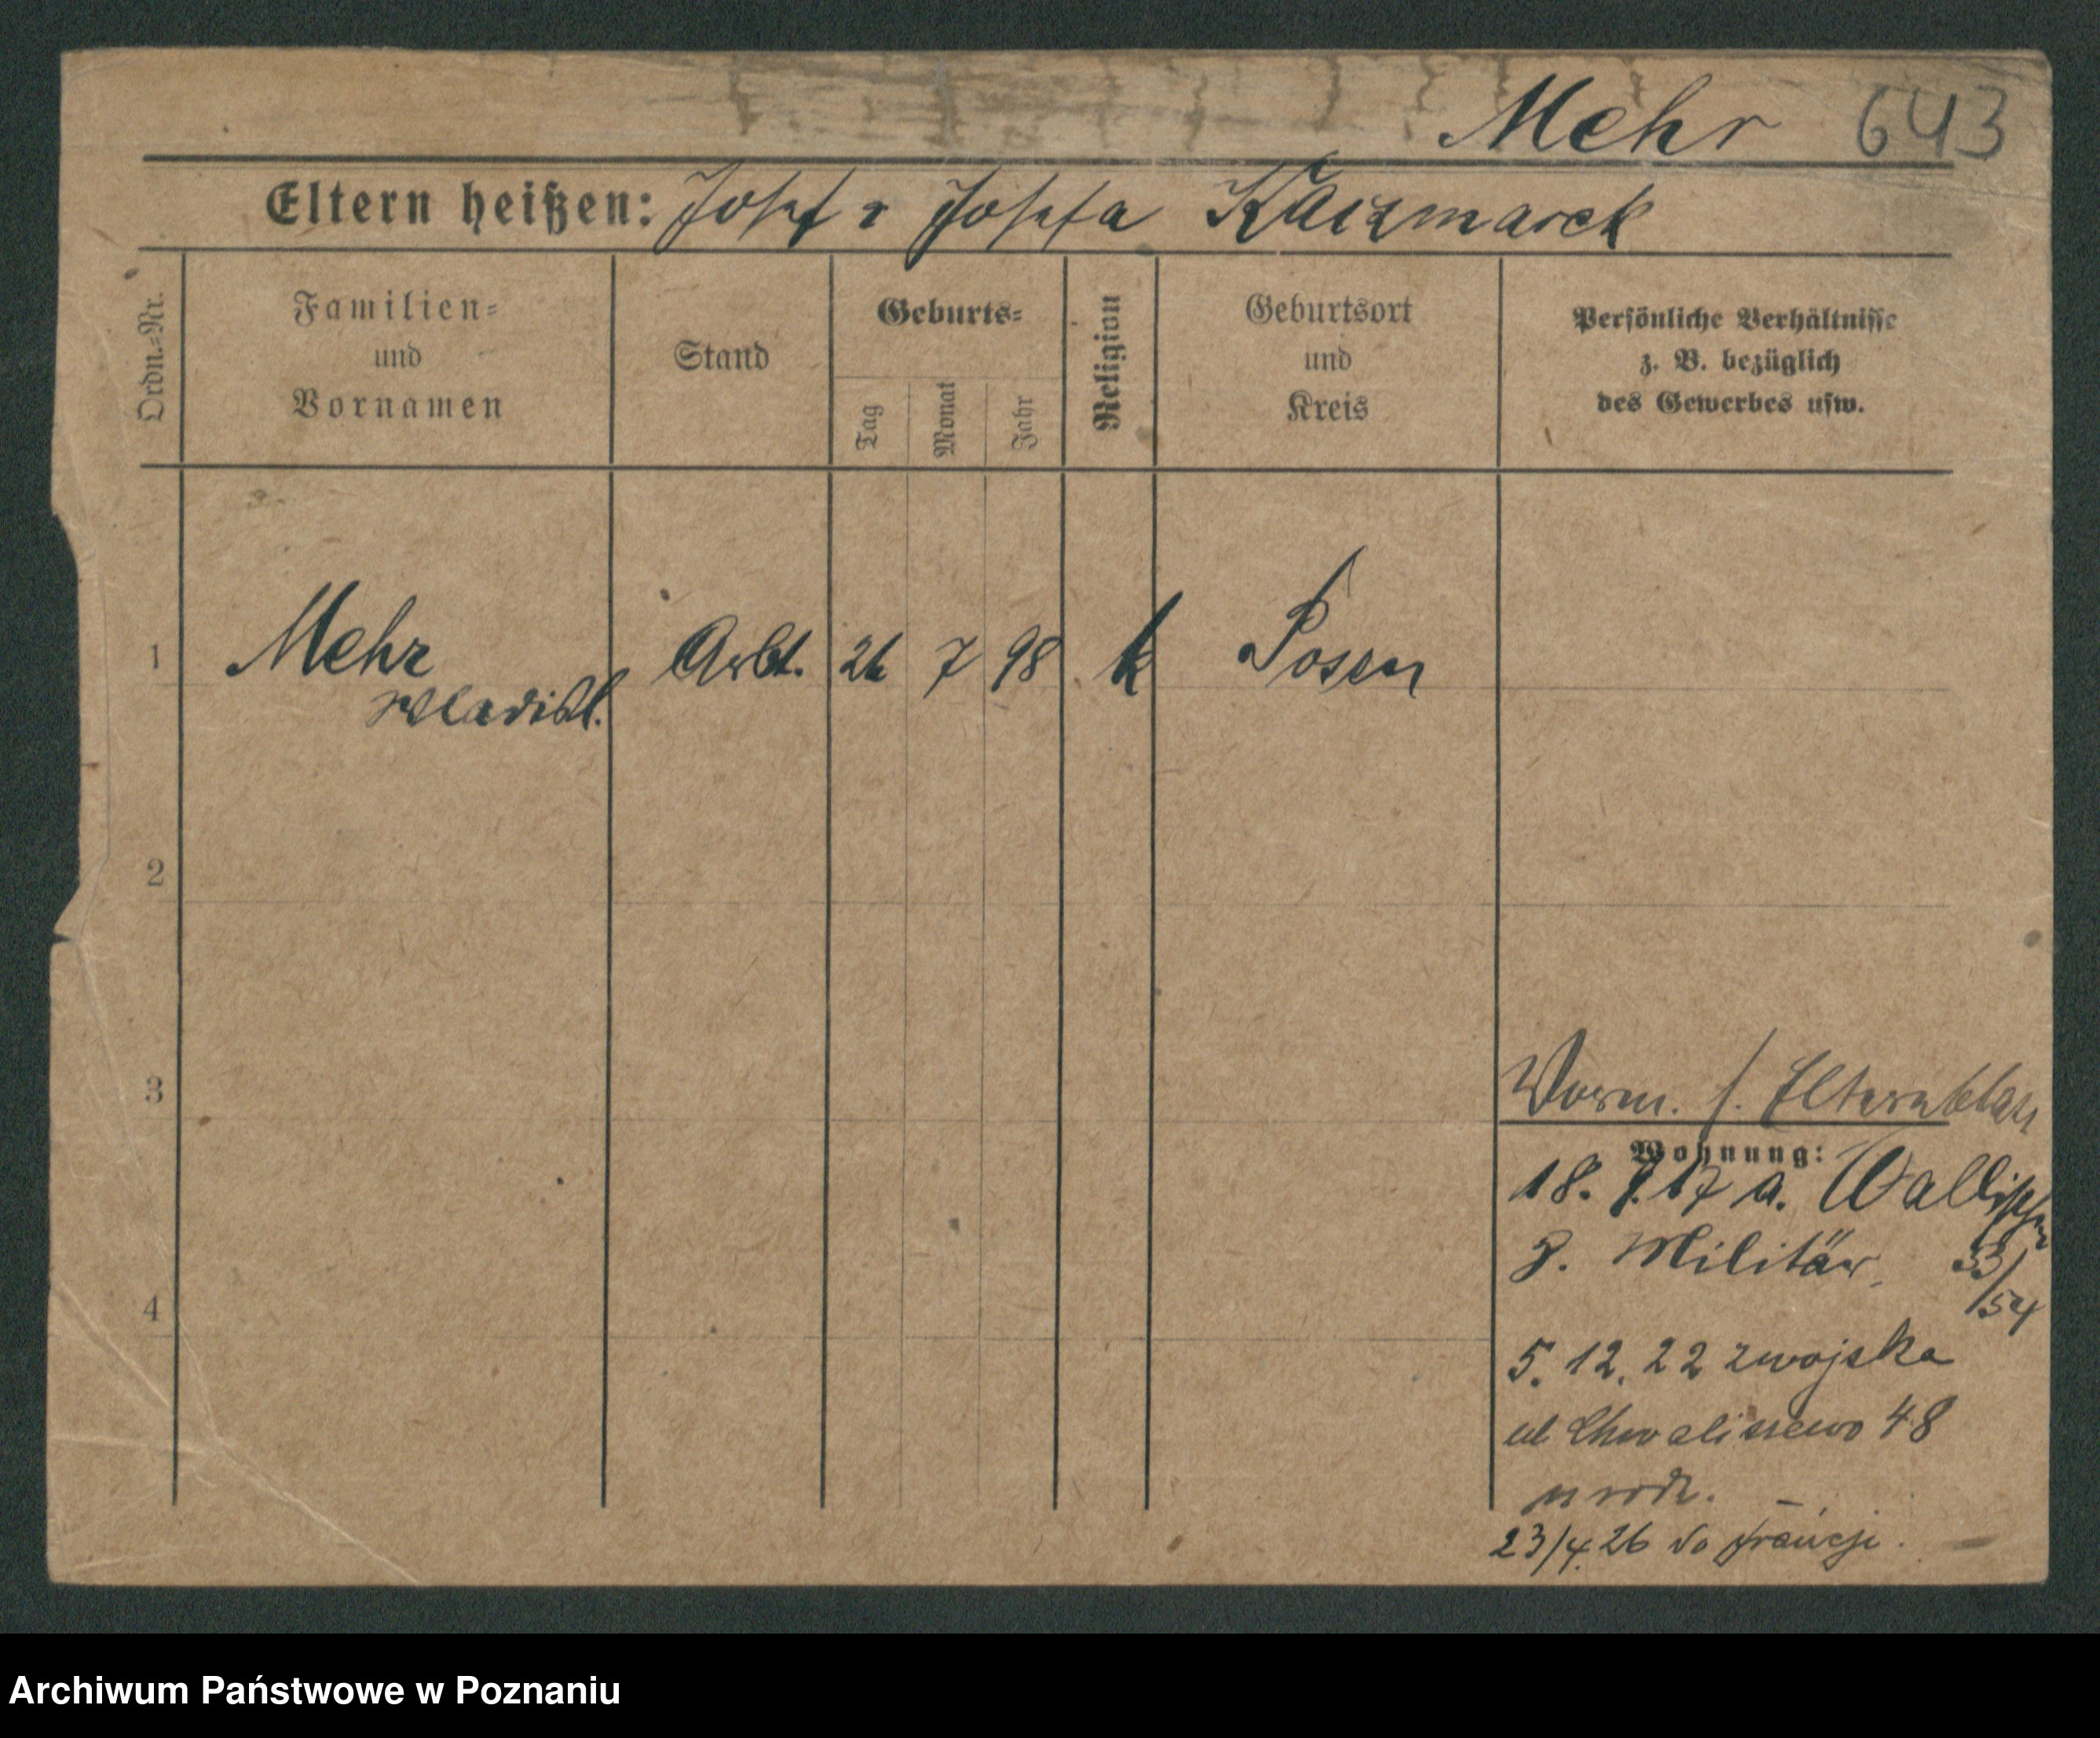 Mehr 643
Eltern heißen: Josef u Josefa Kaczmarek
Ordn.=Nr.
Familien=
und
Vornamen
Stand
Geburts=
Tag
Monat
Jahr
Religion
Geburtsort
und
Kreis
Persönliche Verhältnisse
z. B. bezüglich
des Gewerbes usw.
1 Mehr Arbt. 26 7 98 k Posen
Wladisl.
2
3
Vorm. s. Elternblatt
Wohnung:
18. 17 a. Wallischei
z. Militär 33/54
4
5. 12. 22 z wojska
ul Chwaliszewo 48
u rodz.
23/4.26 do francji.
Archiwum Państwowe w Poznaniu